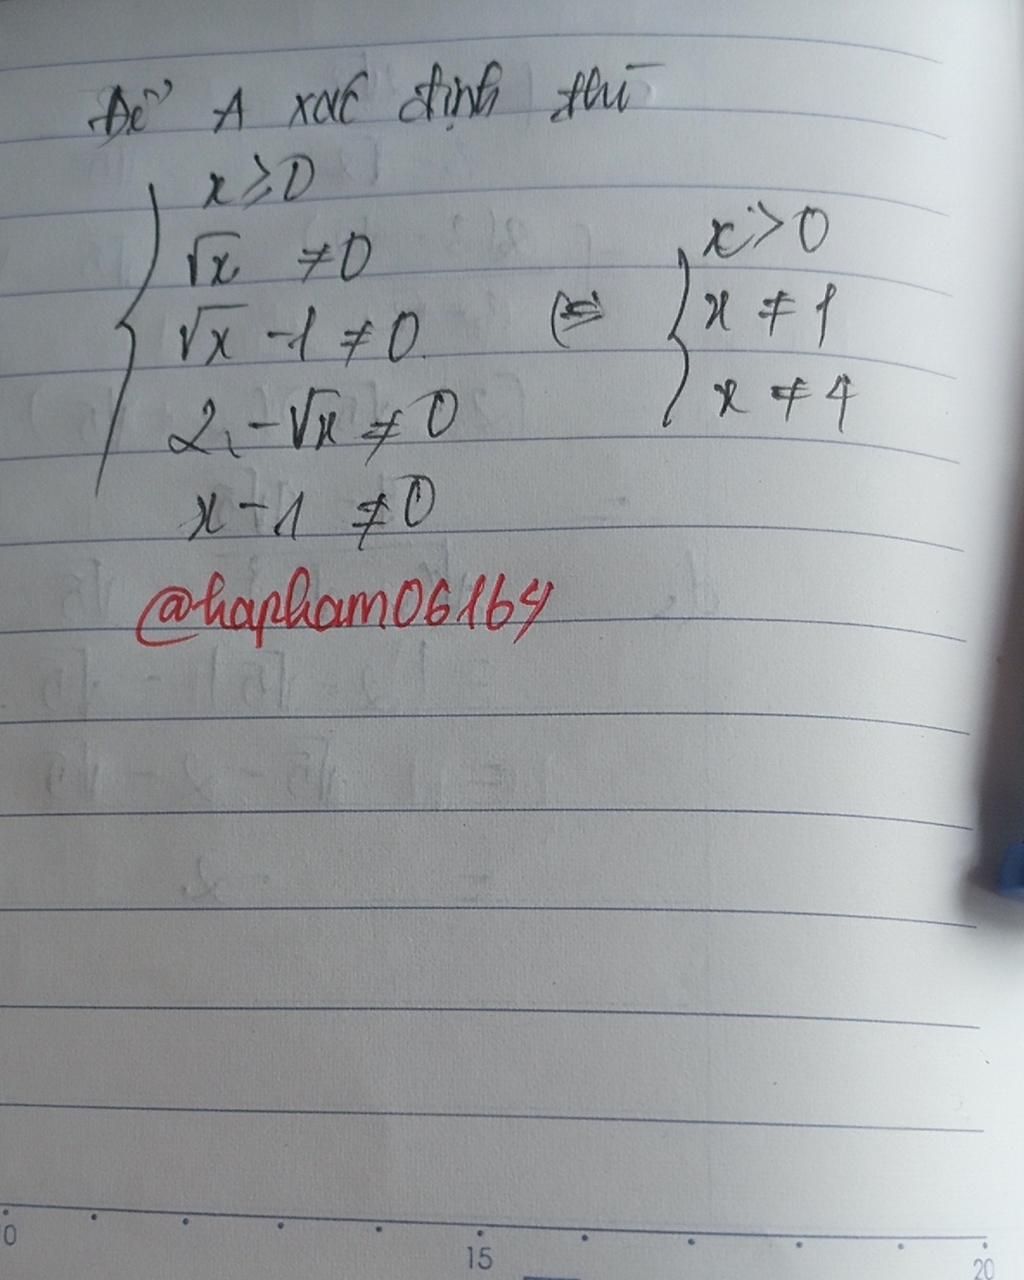 Để A xác định thì
x ≥ 0
√x ≠ 0
√x - 1 ≠ 0
2 - √x ≠ 0
x - 1 ≠ 0
⇔
x > 0
x ≠ 1
x ≠ 4
@hapham06164
0 15 20